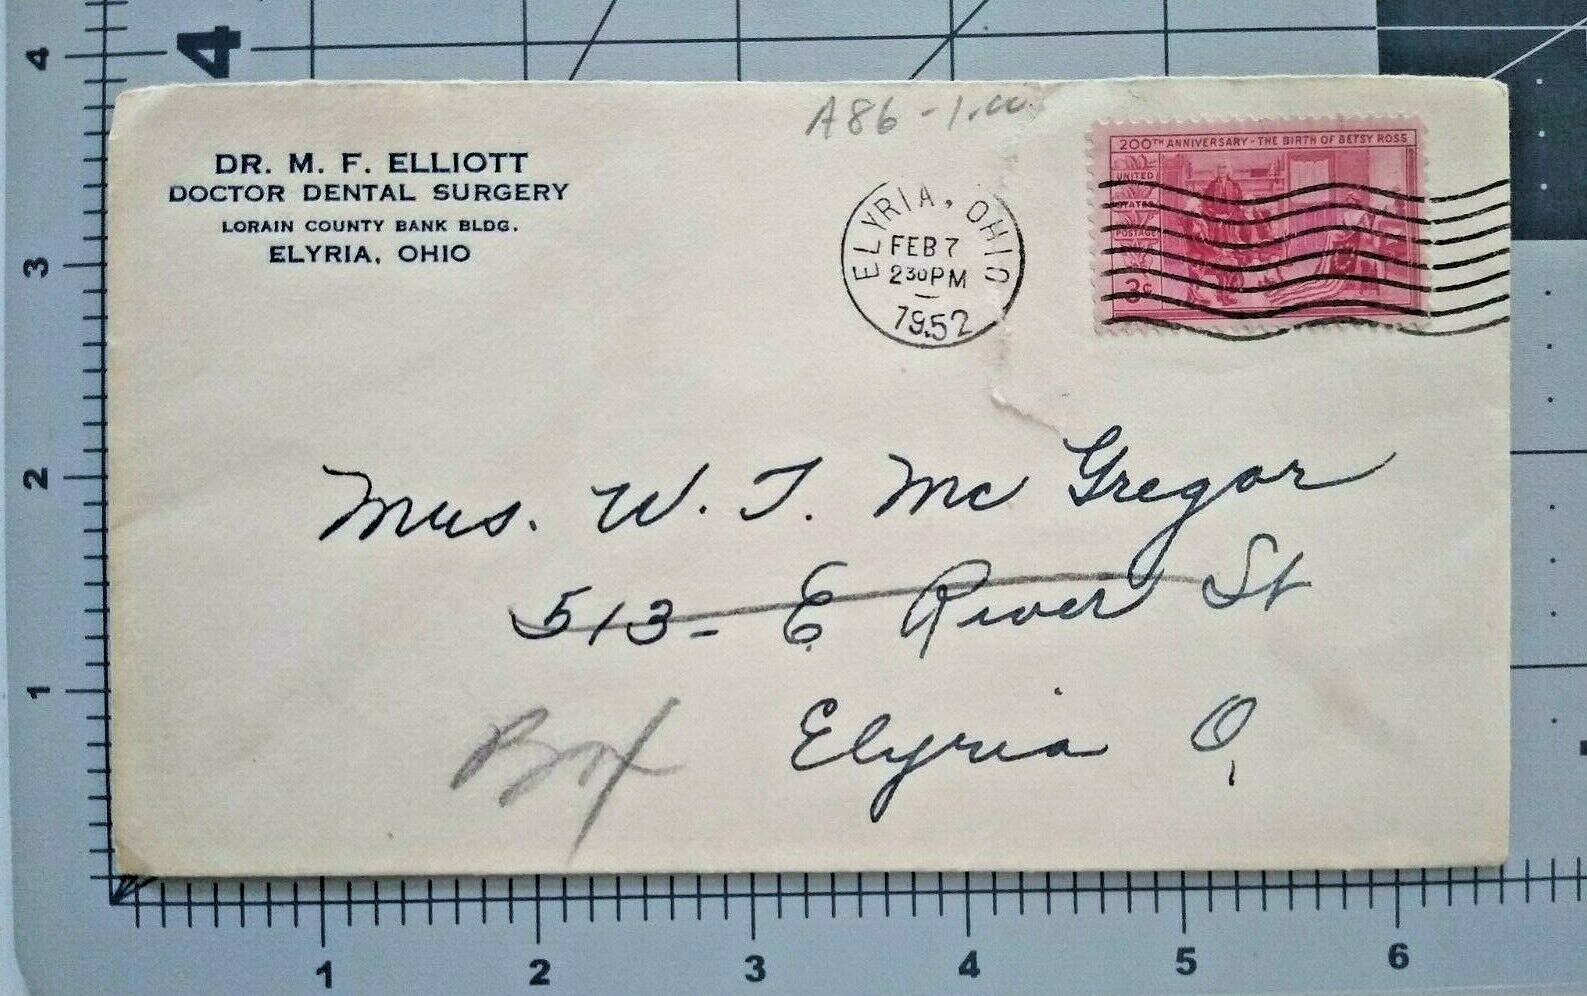 A86-1.00
DR. M. F. ELLIOTT
DOCTOR DENTAL SURGERY
LORAIN COUNTY BANK BLDG.
ELYRIA, OHIO
ELYRIA, OHIO
FEB 7
230PM
1952
200TH ANNIVERSARY - THE BIRTH OF BETSY ROSS
UNITED
STATES
POSTAGE
3¢
Mrs. W. T. McGregor
513- E. River St
Elyria O,
Box
4
4
3
2
1
1
2
3
4
5
6